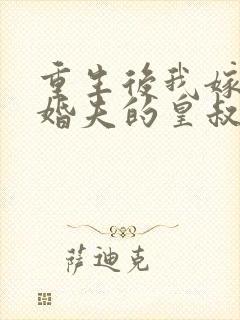 重生後我嫁
婚夫的皇叔
萨迪克